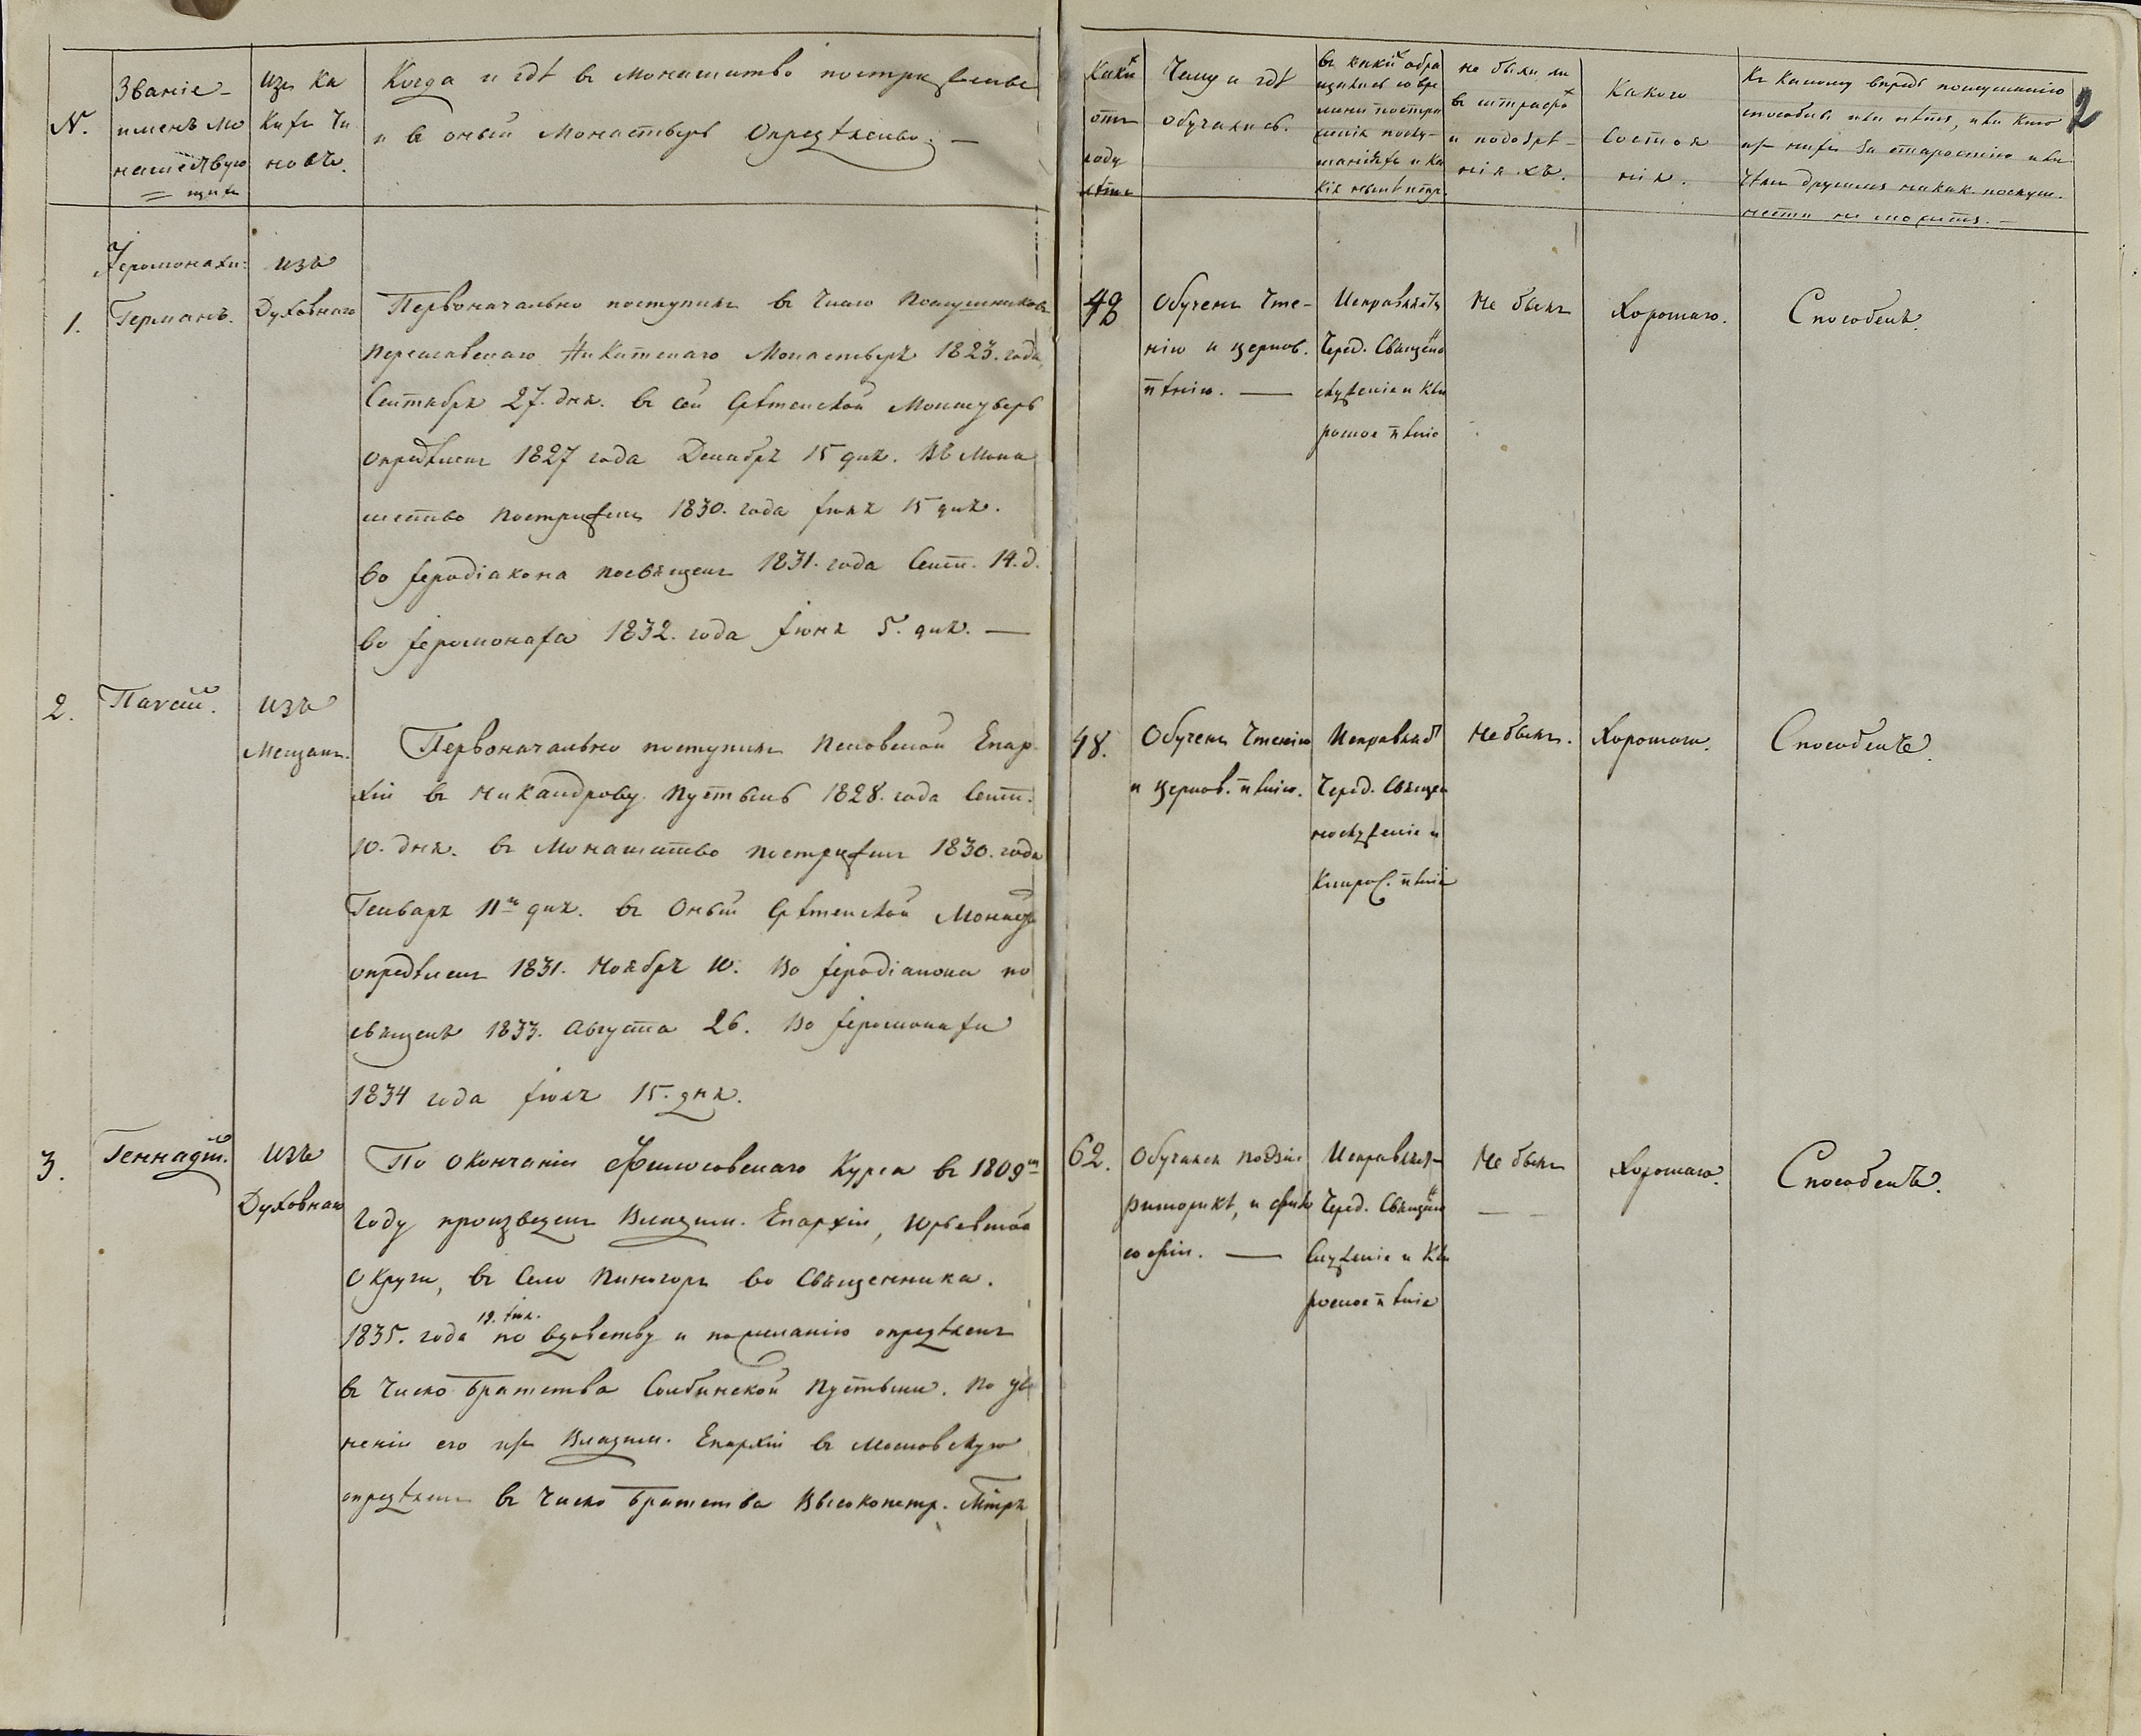 №.
Званіе
именъ мо
нашествую
щихъ
изъ ка
кихъ чи
новъ.
Когда и гдѣ въ монашество постриженъ
и въ оный монастырь опредѣленъ. —
Какихъ
отъ
роду
лѣтъ
Чему и гдѣ
обучались.
въ какихъ обра
щались со вре
мени постри
женія послу-
шаніяхъ и ка
кія нынѣ
не были ли
въ штрафах
и подозрѣ-
ніяхъ.
Какого
состоя
нія.
Къ какому впредь послушанію
способенъ или нѣтъ, или кто
изъ нихъ за старостію или
чѣмъ другимъ никак. послуш.
нести не можетъ. —
2
Іеромонахи:
1.
Германъ.
изъ
Духовнаго
Первоначально поступилъ въ число послушниковъ
Переславскаго Никитскаго Монастыря 1823. года,
Сентября 27. дня. въ сей Срѣтенской Монастырь
опредѣленъ 1827 года Декабря 15 дня. Въ Мона
шество постриженъ 1830. года Іюля 15 дня.
во Іеродіакона посвященъ 1831. года Сент. 14. д.
во Іеромонаха 1832. года Іюня 5. дня. —
Обученъ чте-
нію и церков.
пѣнію. —
Исправляетъ
Черед. Священо
служеніе и Кли
росное пѣніе
Не былъ
Хорошаго.
Способенъ.
2.
Паисій.
изъ
Мещанъ.
Первоначально поступилъ Псковской Епар
хіи въ Никандрову Пустынь 1828. года Сент.
10. дня. въ Монашество постриженъ 1830. года
Генваря 11го дня. въ оный Срѣтенской Монаст
опредѣленъ 1831. Ноября 10. Во Іеродіакона по
священъ 1833. Августа 26. Во Іеромонахи
1834 года Іюля 15. дня.
48.
Обученъ Чтенію
и Церков. пѣнію.
Исправляе
Черед. Священ
нослуженіе и
Клирос. пѣніе
Не былъ.
Хорошаго.
Способенъ.
3.
Геннадій.
изъ
Духовнаго
По окончаніи Философскаго Курса въ 1809м
году произведенъ Владим. Епархіи, Юрьевской
Округи, въ Село во Священника.
1835. года 19. по вдовству и по желанію опредѣленъ
въ число братства Солбинской Пустыни. По у
неніи его изъ Владим. Епархіи въ Московскую
опредѣленъ въ число братства Высокопетр. Мтря
62.
Обучался поэзіи
риторикѣ, и фило
софіи. —
Исправляя-
Черед. Священо
Служеніе и Кли
росное пѣніе
Не былъ
— —
Хорошаго.
Способенъ.